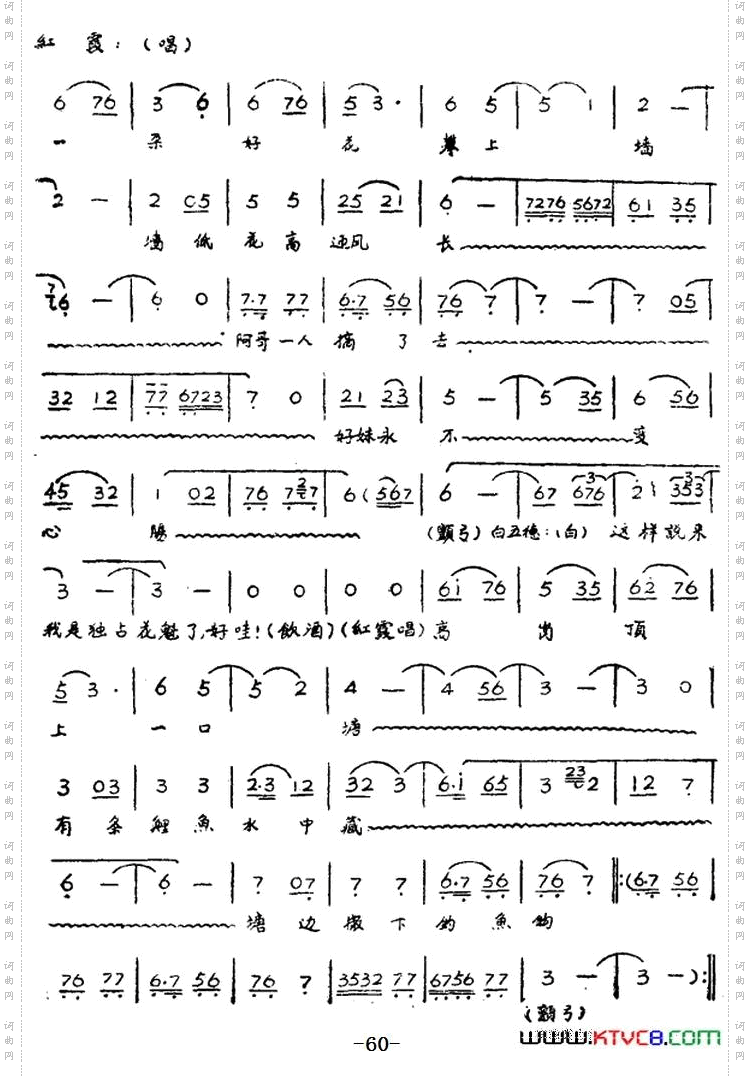 紅 霞：（唱）
6 76 | 3 6 | 6 76 | 5 3· | 6 5 | 5 1 | 2 —
一 朵 好 花 攀 上 墙
2 — | 2 05 | 5 5 | 25 21 | 6 — | 7276 5672 | 61 35
墙 低 花 高 迎风 长
76 — | 6 0 | 7·7 77 | 6·7 56 | 76 7 | 7 — | 7 05
阿哥一人 摘 了 去
32 12 | 77 6723 | 7 0 | 21 23 | 5 — | 5 35 | 6 56
好妹永 不 变
45 32 | 1 02 | 76 727 | 6 (567 | 6 — | 67 676 | 2 353
心 腸 (顫弓) 白五德：(白) 这样説来
3 — | 3 — | 0 0 | 0 0 | 61 76 | 5 35 | 62 76
我是独占花魁了,好哇!(飲酒)(紅霞唱) 高 崗 頂
5 3· | 6 5 | 5 2 | 4 — | 4 56 | 3 — | 3 0
上 一 口 塘
3 03 | 3 3 | 2·3 12 | 32 3 | 6·1 65 | 3 232 | 12 7
有 条 鯉 魚 水 中 藏
6 — | 6 — | 7 07 | 7 7 | 6·7 56 | 76 7 |: (6·7 56
塘 边 撒 下 钓 魚 鈎
76 77 | 6·7 56 | 76 7 | 3532 77 | 6756 77 | 3 — | 3 —) :|
(顫弓)
-60-
www.KTVC8.com
词曲网